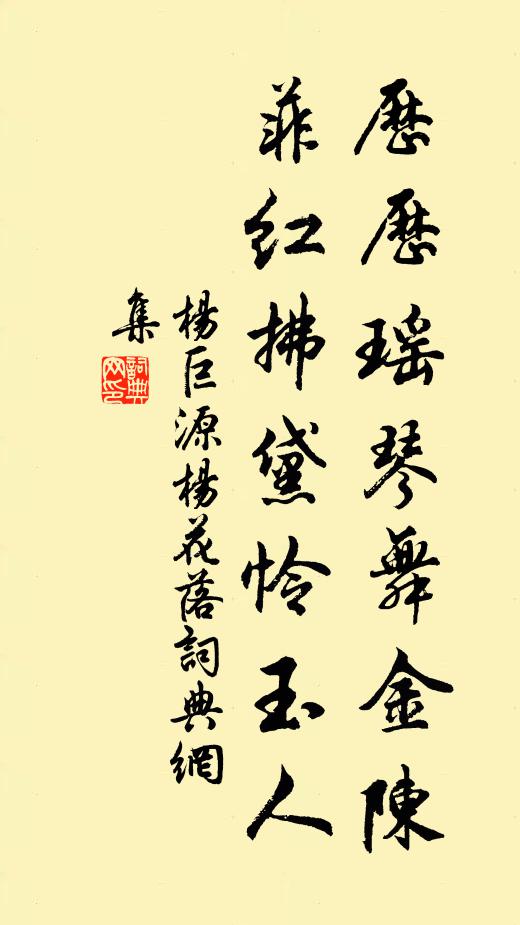 歷歷瑶琴舞金陳
菲紅拂黛怜玉人
楊巨源楊花落詞典網
集
詞典
网印